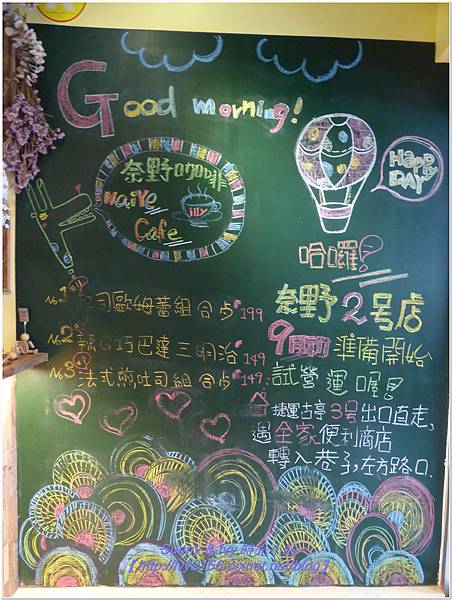 Good morning!
奈野咖啡
Naiye
Cafe
illy
HAPPY
DAY
哈囉!
No.1 起司歐姆蕾組合 $199
No.2 巧巴達三明治 $149
No.3 法式煎吐司組合 $149
奈野2号店
9月初準備開始
試營運喔!
捷運古亭3号出口直走,
遇全家便利商店
轉入巷子,左方路口.